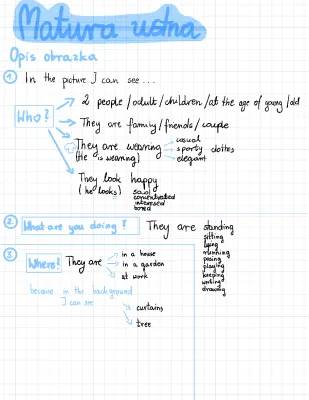 Matura ustna
Opis obrazka
1 In the picture I can see ...
Who?
2 people/adult/children/at the age of young/old
They are family/friends/couple
They are wearing
(He is wearing)
casual
sporty clothes
elegant
They look happy
(he looks) sad
concentrated
interested
bored
2 What are you doing? They are standing
sitting
lying
running
posing
playing
keeping
writing
drawing
3 Where? They are
in a house
in a garden
at work
because in the background
I can see
curtains
tree